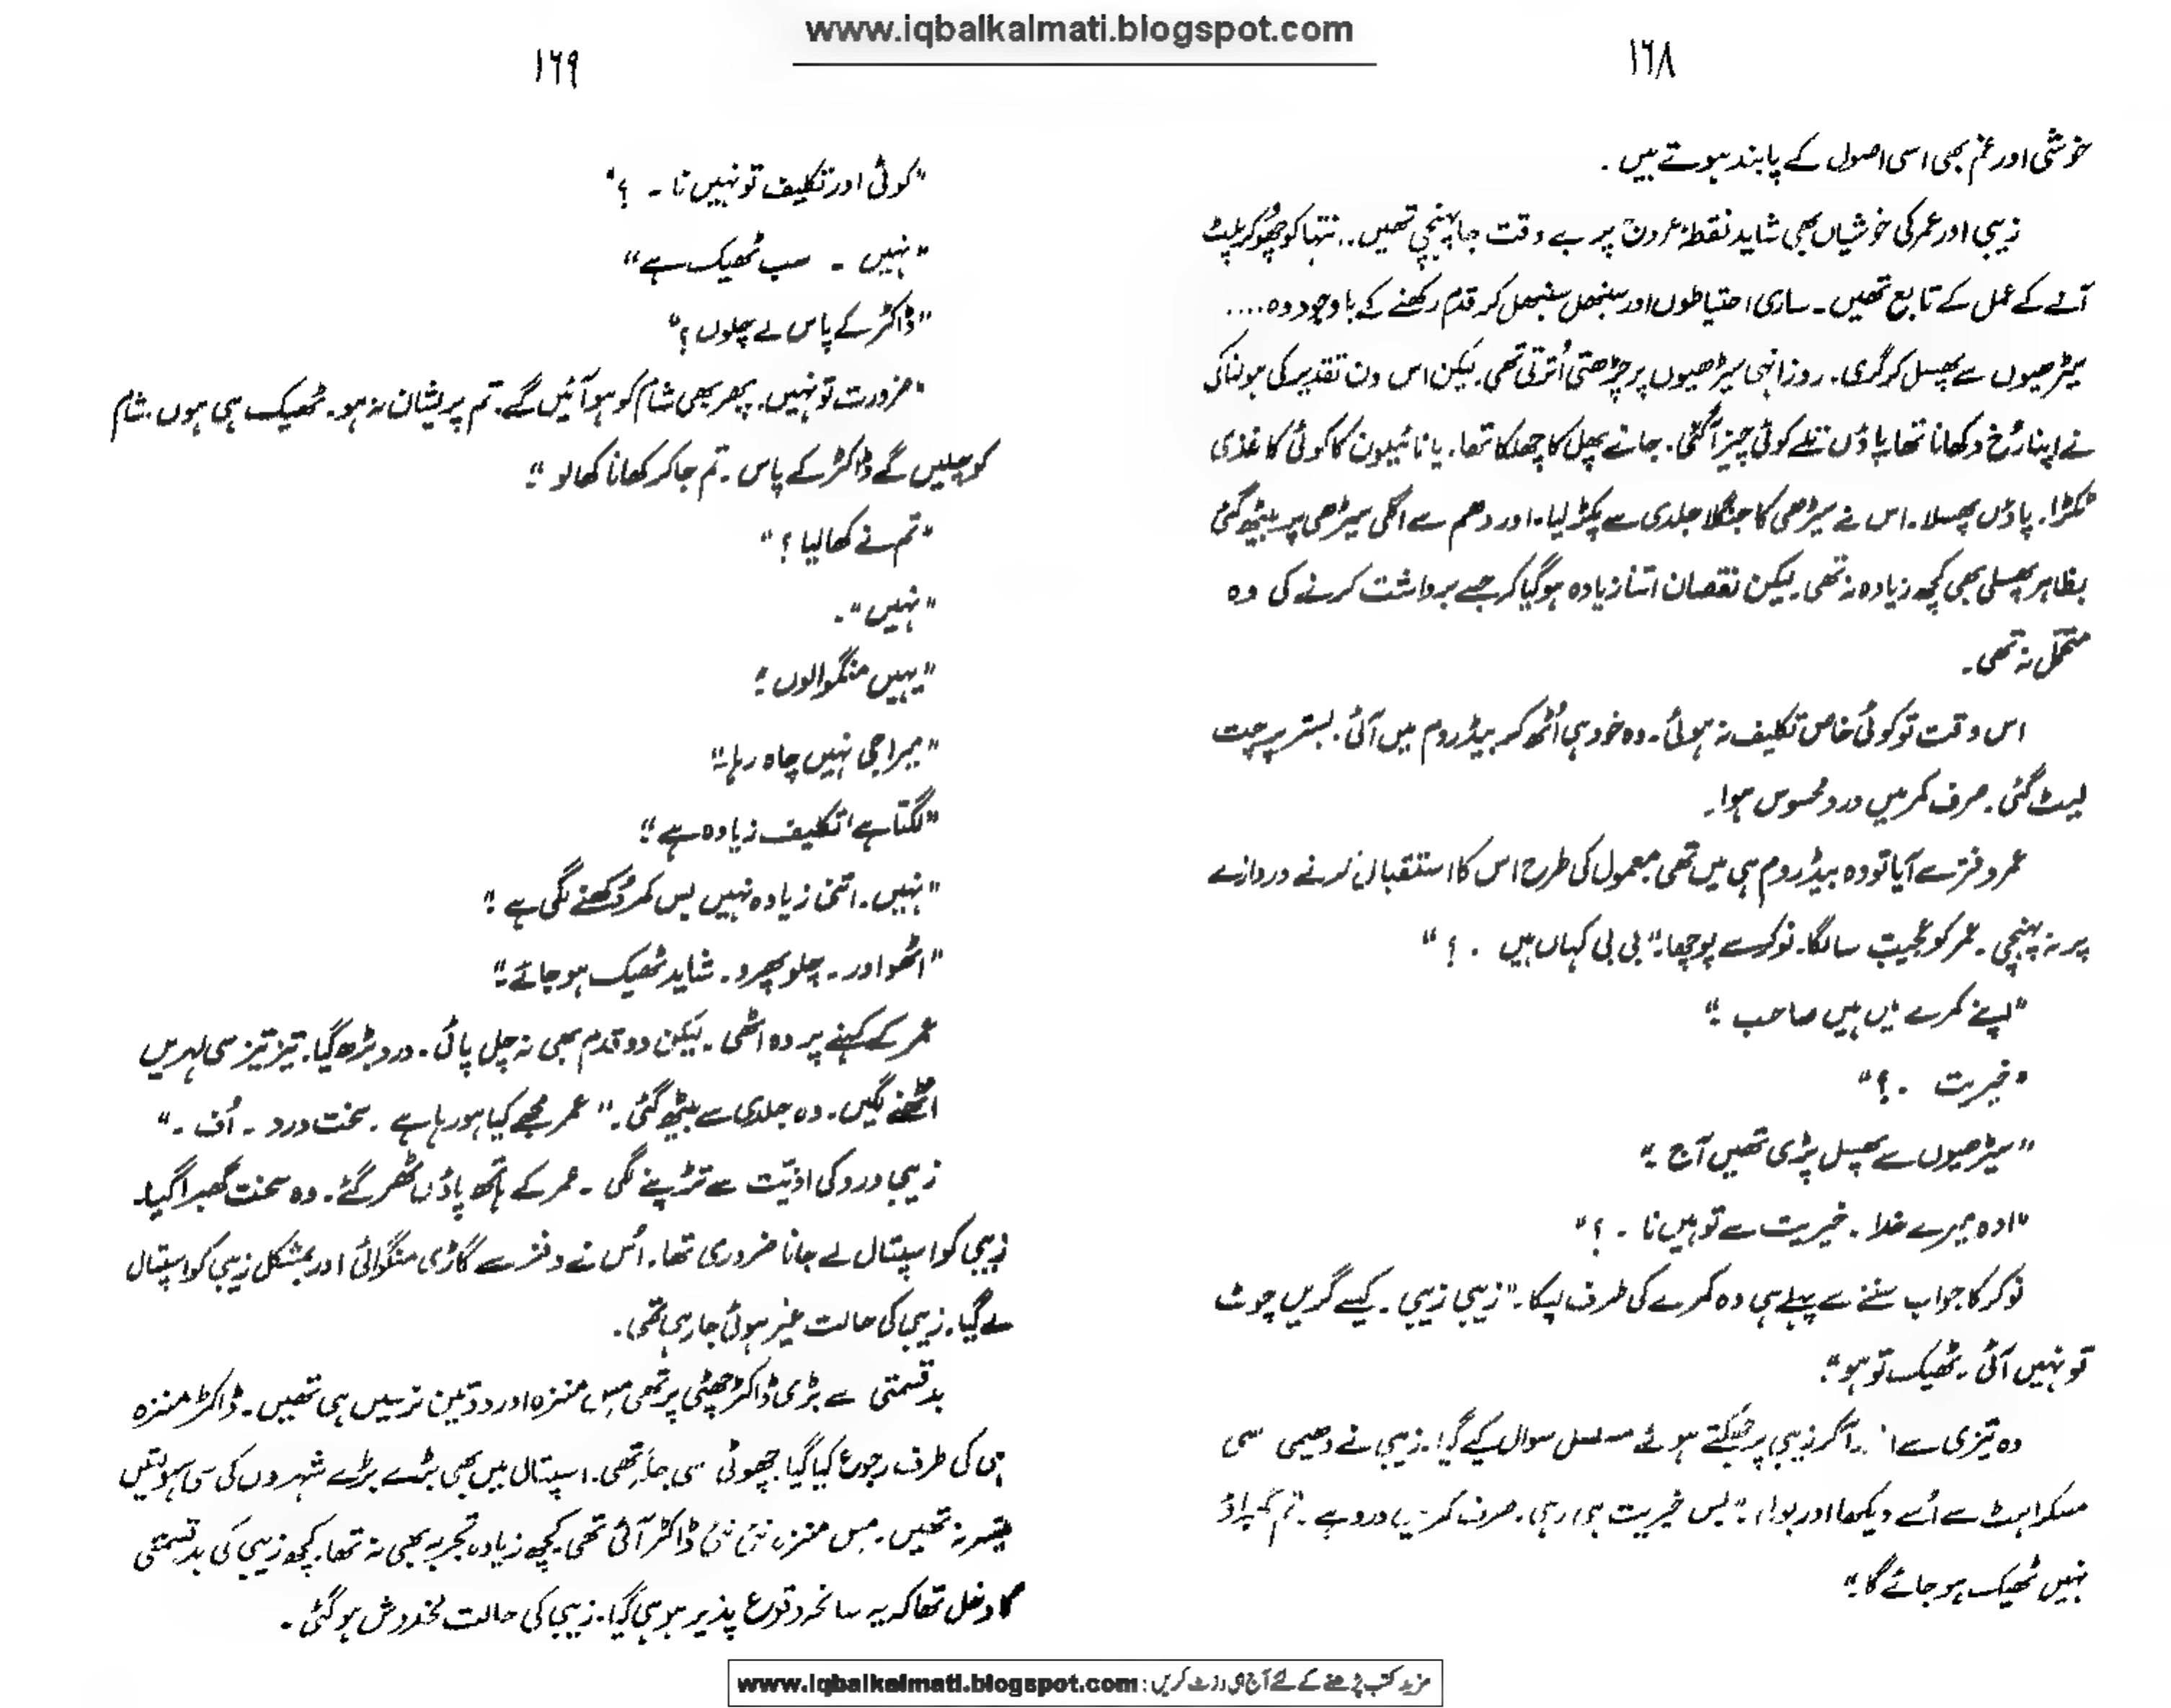 www.iqbalkalmati.blogspot.com
۱۶۸
خوشی اور غم بھی اسی اصول کے پابند ہوتے ہیں۔
زیبی اور عمر کی خوشیاں بھی شاید نقطۂ عروج پر بے وقت جا پہنچی تھیں.. منتہا کو چھو کر پلٹ
آنے کے عمل کے تابع تھیں۔ ساری احتیاطوں اور سنبھل سنبھل کر قدم رکھنے کے باوجود وہ....
سیڑھیوں سے پھسل کر گری۔ روز انہی سیڑھیوں پر چڑھتی اُترتی تھی۔ لیکن اس دن تقدیر کی ہولناکی
نے اپنا رُخ دکھانا تھا پاؤں تلے کوئی چیز آگئی۔ جانے پھل کا چھلکا تھا۔ یا نائیلون کا کوئی کاغذی
ٹکڑا۔ پاؤں پھسلا۔ اس نے سیڑھی کا جنگلا جلدی سے پکڑ لیا۔ اور دھم سے اگلی سیڑھی پر بیٹھ گئی
بظاہر پھسلی بھی کچھ زیادہ نہ تھی۔ لیکن نقصان اتنا زیادہ ہوگیا کہ جسے برداشت کرنے کی وہ
متحمل نہ تھی۔
اس وقت تو کوئی خاص تکلیف نہ ہوئی۔ وہ خود ہی اُٹھ کر بیڈ روم میں آئی۔ بستر پر چت
لیٹ گئی۔ صرف کمر میں درد محسوس ہوا۔
عمر دفتر سے آیا تو وہ بیڈ روم ہی میں تھی۔ معمول کی طرح اس کا استقبال کرنے دروازے
پر نہ پہنچی۔ عمر کو عجیب سا لگا۔ نوکر سے پوچھا۔ "بی بی کہاں ہیں ۔ ؟"
"اپنے کمرے میں ہیں صاحب۔"
"خیریت ۔ ؟"
"سیڑھیوں سے پھسل پڑی تھیں آج۔"
"اوہ میرے خدا ۔ خیریت سے تو ہیں نا ۔ ؟"
نوکر کا جواب سننے سے پہلے ہی وہ کمرے کی طرف لپکا۔ "زیبی زیبی ۔ کیسے گریں چوٹ
تو نہیں آئی۔ ٹھیک تو ہو"۔
وہ تیزی سے آ کر زیبی پر جھکتے ہوئے مسلسل سوال کیے گیا۔ زیبی نے دھیمی سی
مسکراہٹ سے اُسے دیکھا اور بولی "بس خیریت ہی رہی۔ صرف کمر میں درد ہے۔ تم گھبراؤ
نہیں ٹھیک ہو جائے گا۔"
۱۶۹
"کوئی اور تکلیف تو نہیں نا ۔ ؟"
"نہیں ۔ سب ٹھیک ہے"
"ڈاکٹر کے پاس لے چلوں؟"
"ضرورت تو نہیں۔ پھر بھی شام کو ہو آئیں گے۔ تم پریشان نہ ہو۔ ٹھیک ہی ہوں۔ شام
کو چلیں گے ڈاکٹر کے پاس۔ تم جا کر کھانا کھا لو۔"
"تم نے کھا لیا؟"
"نہیں"۔
"یہیں منگوا لوں؟"
"میرا جی نہیں چاہ رہا۔"
"لگتا ہے تکلیف زیادہ ہے۔"
"نہیں۔ اتنی زیادہ نہیں بس کمر دُکھنے لگی ہے۔"
"اٹھو اور ۔ چلو پھرو ۔ شاید ٹھیک ہو جائے۔"
عمر کے کہنے پر وہ اٹھی۔ لیکن دو قدم بھی نہ چل پائی۔ درد بڑھ گیا۔ تیز تیز سی لہریں
اٹھنے لگیں۔ وہ جلدی سے بیٹھ گئی۔ "عمر مجھے کیا ہو رہا ہے۔ سخت درد ۔ اُف ۔"
زیبی درد کی اذیّت سے تڑپنے لگی۔ عمر کے ہاتھ پاؤں ٹھٹھر گئے۔ وہ سخت گھبرا گیا۔
زیبی کو اسپتال لے جانا ضروری تھا۔ اُس نے دفتر سے گاڑی منگوائی اور بمشکل زیبی کو اسپتال
لے گیا۔ زیبی کی حالت غیر ہوئی جا رہی تھی۔
بدقسمتی سے بڑی ڈاکٹر چھٹی پر تھی مس منزہ اور دو تین نرسیں ہی تھیں۔ ڈاکٹر منزہ
ہی کی طرف رجوع کیا گیا۔ چھوٹی سی جگہ تھی۔ اسپتال میں بھی بڑے بڑے شہروں کی سی سہولتیں
میسر نہ تھیں۔ مس منزہ نئی نئی ڈاکٹر آئی تھی۔ کچھ زیادہ تجربہ بھی نہ تھا۔ کچھ زیبی کی بدقسمتی
کا دخل تھا کہ یہ سانحہ وقوع پذیر ہو ہی گیا۔ زیبی کی حالت مخدوش ہوگئی۔
مزید کتب پڑھنے کے لئے آج ہی وزٹ کریں : www.iqbalkalmati.blogspot.com